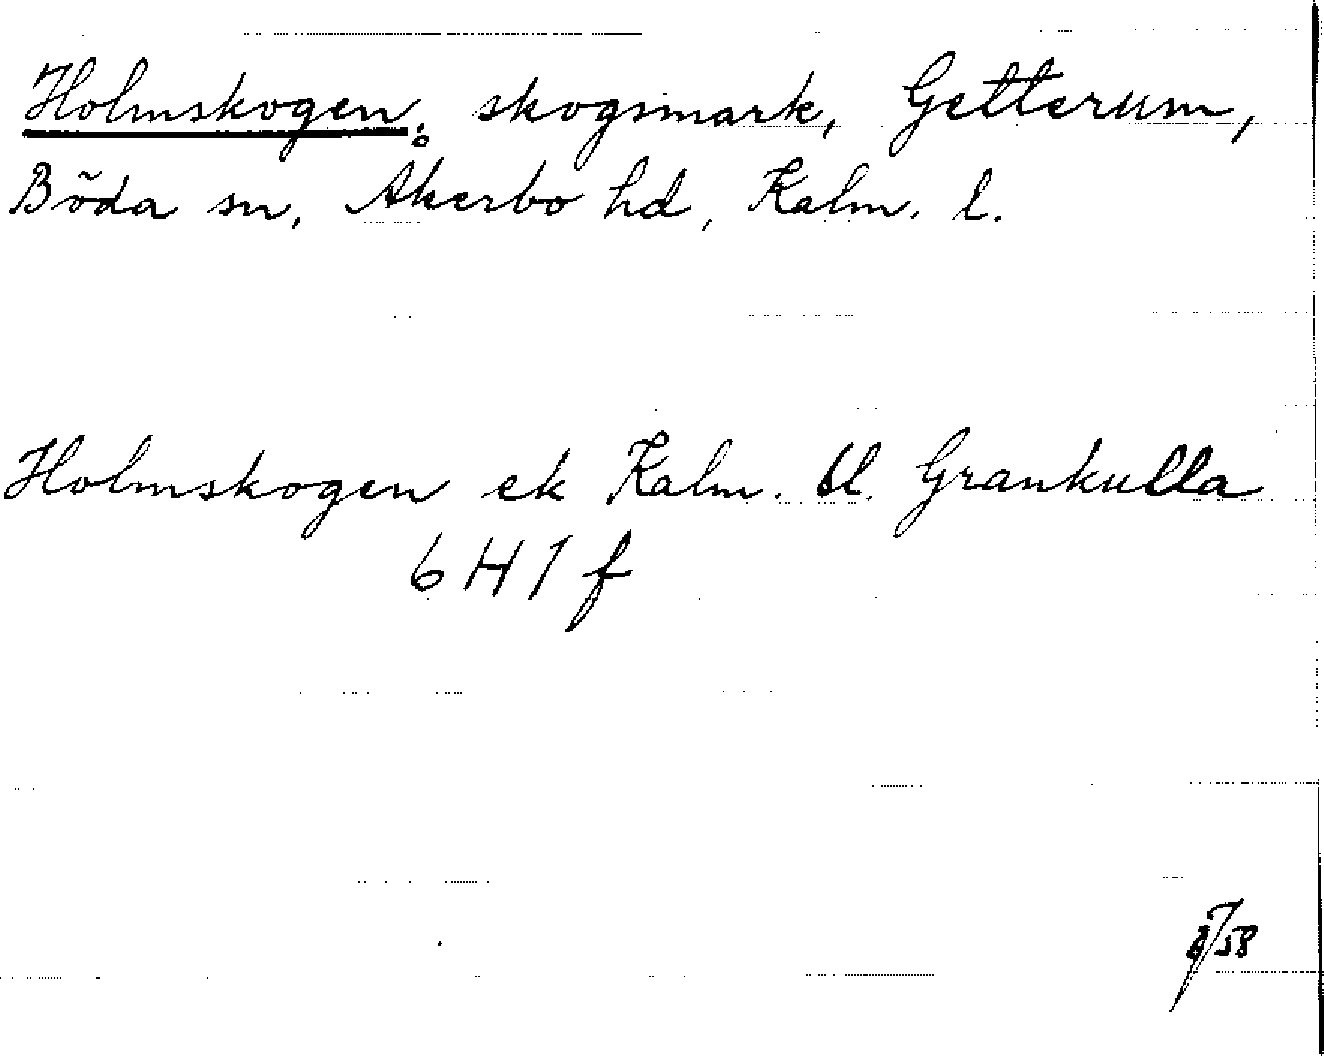 Holmskogen, skogsmark, Getterum,
Böda sn, Åkerbo hd, Kalm. l.
Holmskogen ek Kalm. Grankulla
6 H 1 f